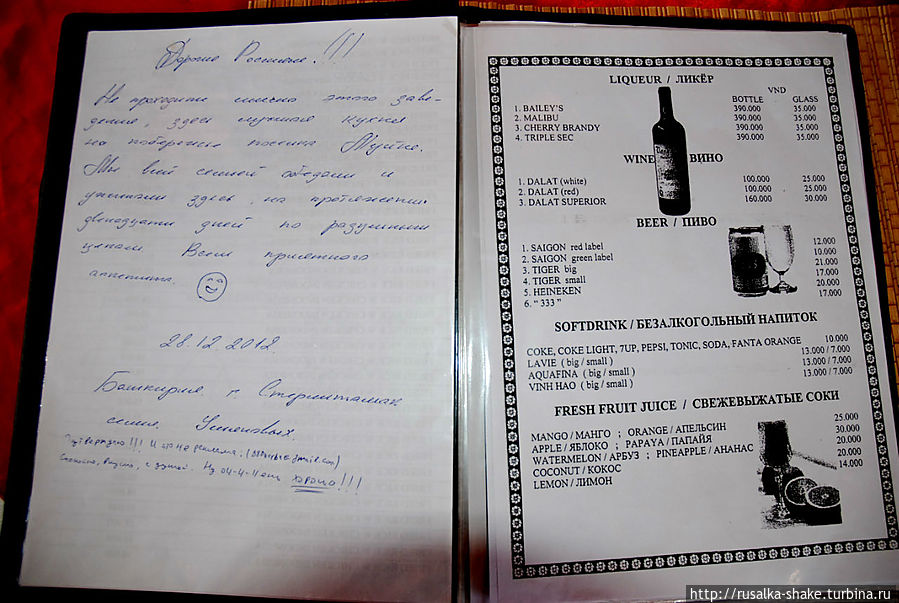 Дорогие Россияне!!!
Не проходите мимо этого заве-
дения, здесь лучшая кухня
на побережье поселка Муйне.
Мы всей семьей обедали и
ужинали здесь на протяжении
двенадцати дней по разумным
ценам. Всем приятного
аппетита.
28.12.2012
Башкирия г. Стерлитамак
семья
Подтверждаю!!! И это не реклама.
вкусно, с душой. Ну
хорошо!!!
LIQUEUR / ЛИКЁР
VND
BOTTLE GLASS
1. BAILEY'S 390.000 35.000
2. MALIBU 390.000 35.000
3. CHERRY BRANDY 390.000 35.000
4. TRIPLE SEC 390.000 35.000
WINE ВИНО
1. DALAT (white) 100.000 25.000
2. DALAT (red) 100.000 25.000
3. DALAT SUPERIOR 160.000 30.000
BEER / ПИВО
1. SAIGON red label 12.000
2. SAIGON green label 10.000
3. TIGER big 21.000
4. TIGER small 17.000
5. HEINEKEN 20.000
6. “ 333 ” 17.000
SOFTDRINK / БЕЗАЛКОГОЛЬНЫЙ НАПИТОК
COKE, COKE LIGHT, 7UP, PEPSI, TONIC, SODA, FANTA ORANGE 10.000
LAVIE ( big / small ) 13.000 / 7.000
AQUAFINA ( big / small ) 13.000 / 7.000
VINH HAO ( big / small ) 13.000 / 7.000
FRESH FRUIT JUICE / СВЕЖЕВЫЖАТЫЕ СОКИ
MANGO / МАНГО ; ORANGE / АПЕЛЬСИН 25.000
APPLE / ЯБЛОКО ; PAPAYA / ПАПАЙЯ 30.000
WATERMELON / АРБУЗ ; PINEAPPLE / АНАНАС 20.000
COCONUT / КОКОС 20.000
LEMON / ЛИМОН 14.000
http://rusalka-shake.turbina.ru